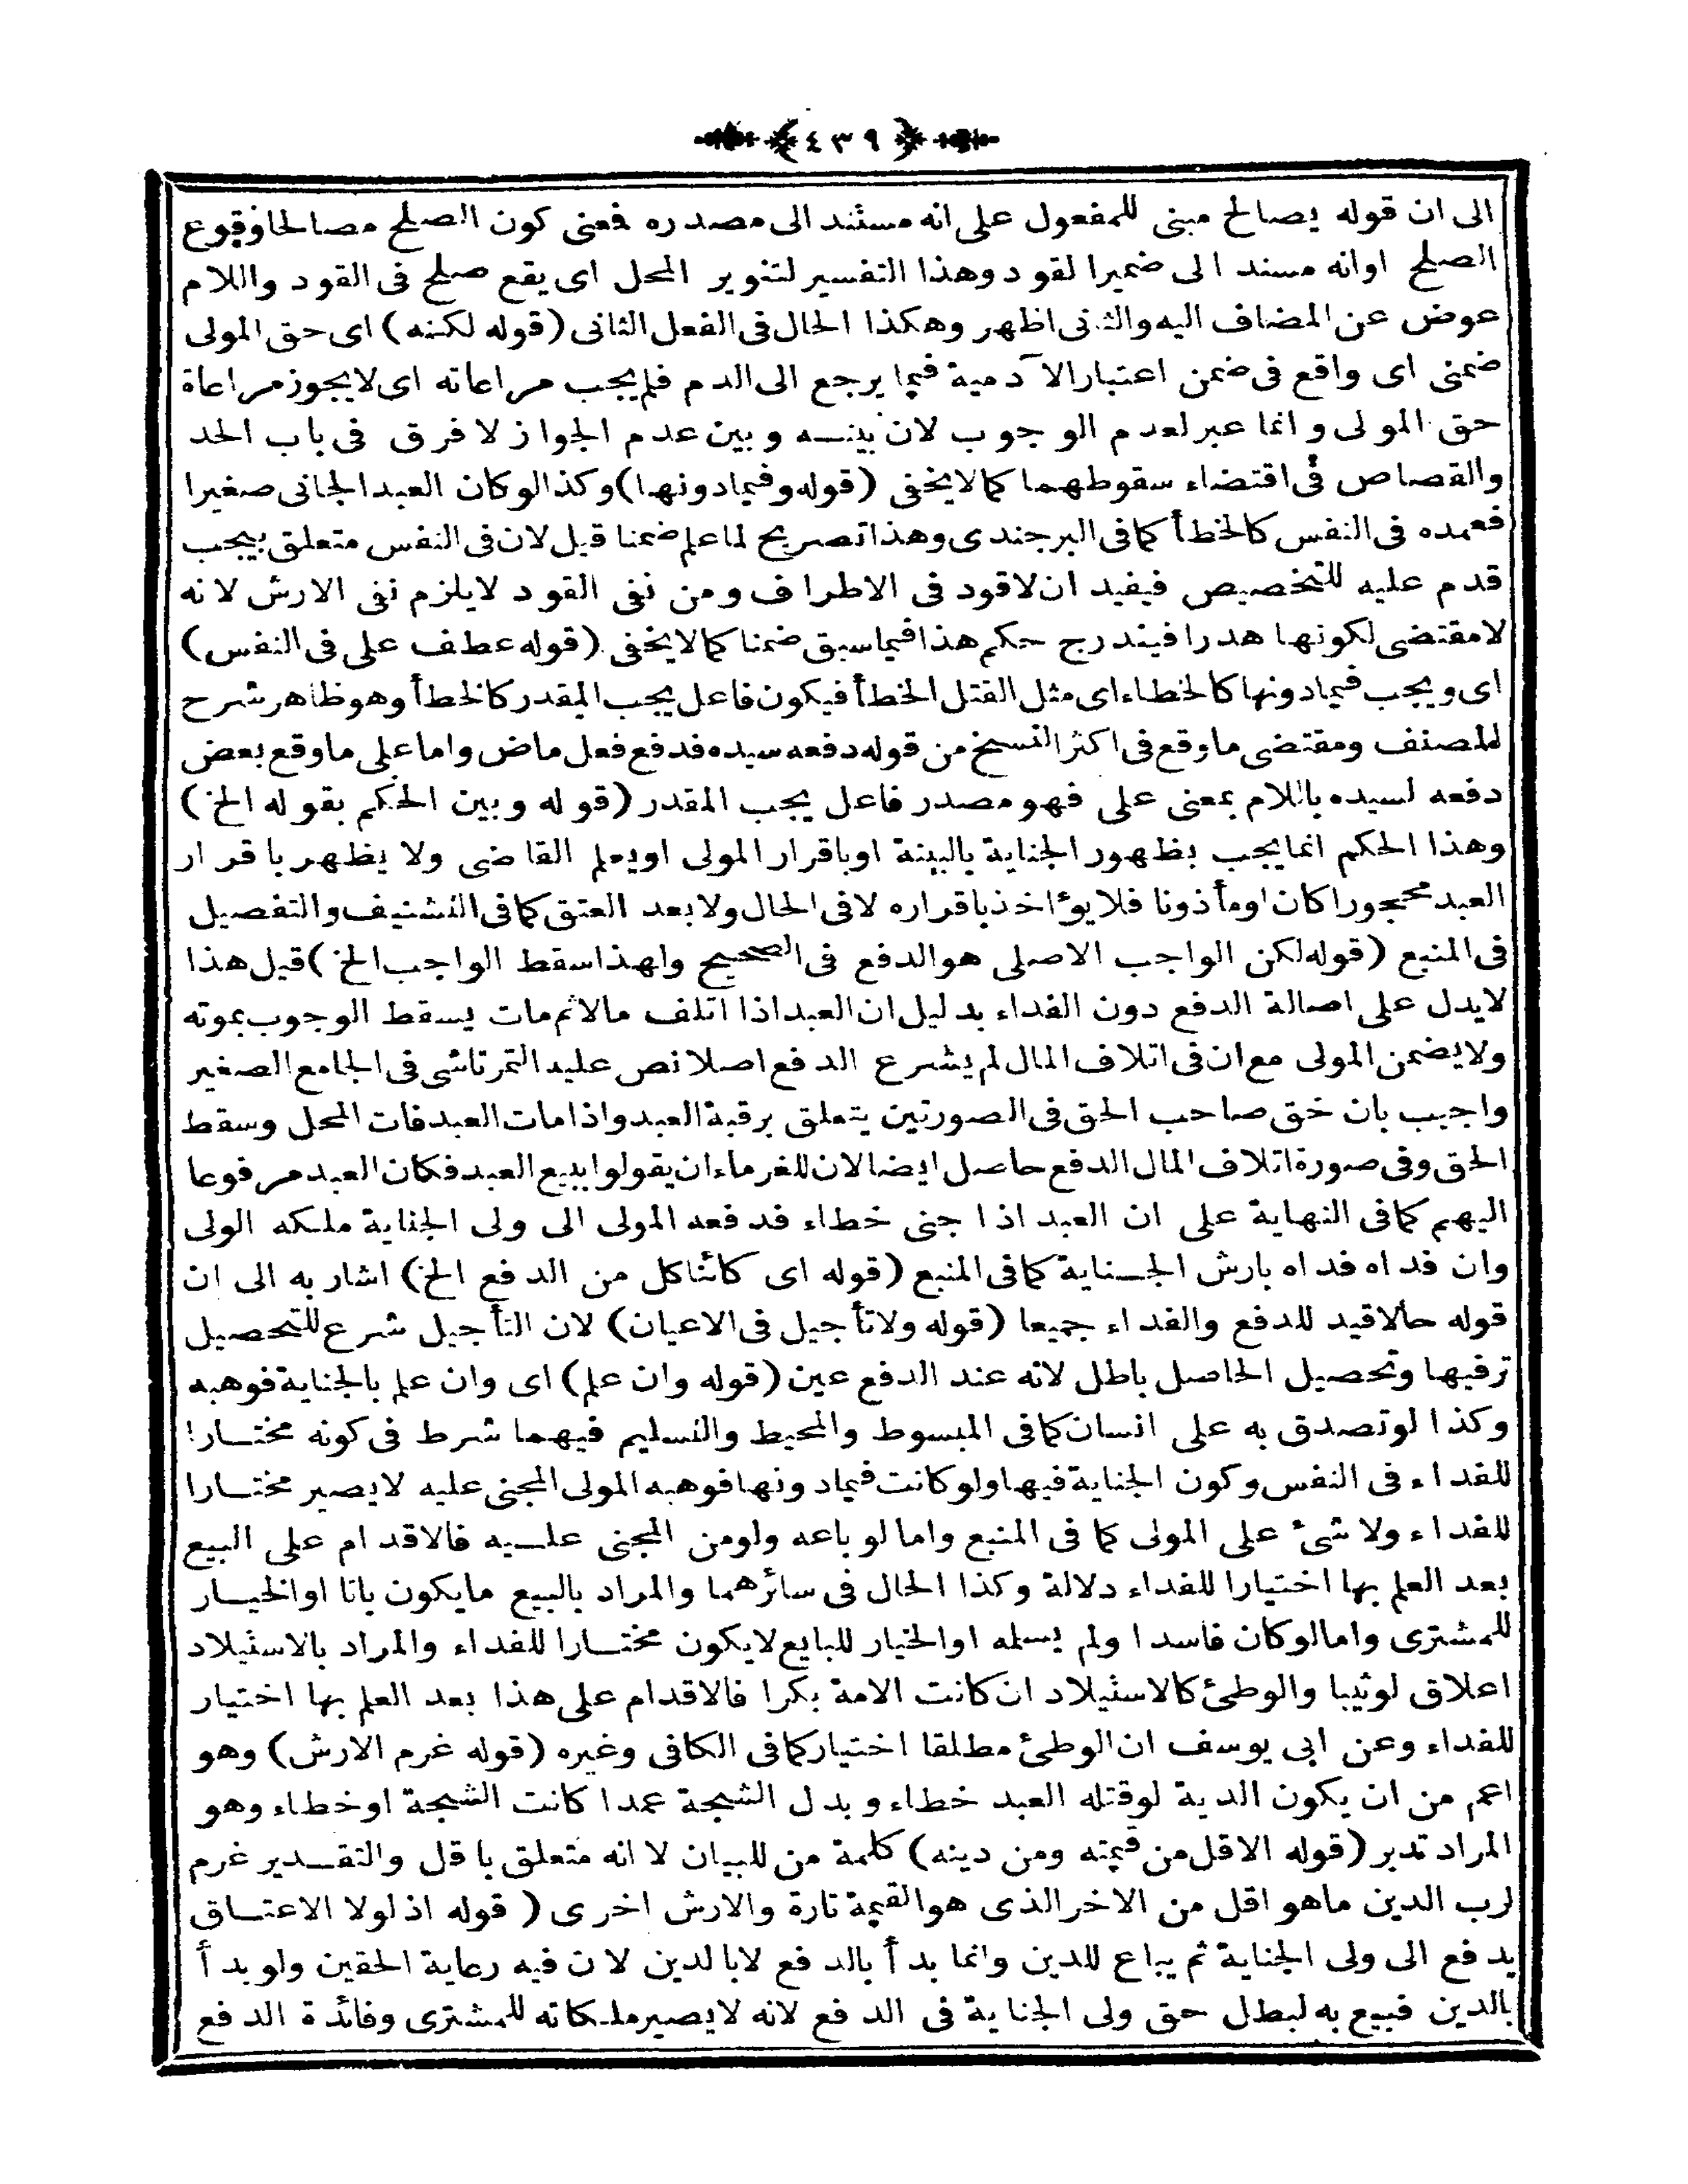 ﴿ ٤٣٩ ﴾
الى ان قوله يصالح مبنى للمفعول على انه مسند الى مصدره فمعنى كون الصلح مصالحا وقوع
الصلح اوانه مسند الى ضميرا لقود وهذا التفسير لتنوير المحل اى يقع صلح فى القود واللام
عوض عن المضاف اليه والثانى اظهر وهكذا الحال فى الفعل الثانى (قوله لكنه) اى حق المولى
ضمنى اى واقع فى ضمن اعتبار الآدمية فيما يرجع الى الدم فلم يجب مراعاته اى لايجوز مراعاة
حق المولى وانما عبر لعدم الوجوب لان بينه وبين عدم الجواز لا فرق فى باب الحد
والقصاص فى اقتضاء سقوطهما كما لايخفى (قوله وفيمادونها) وكذا لوكان العبد الجانى صغيرا
فعمده فى النفس كالخطأ كما فى البرجندى وهذا تصريح لما علم ضمنا قبل لان فى النفس متعلق بيجب
قدم عليه للتخصيص فيفيد ان لاقود فى الاطراف ومن نفى القود لايلزم نفى الارش لانه
لامقتضى لكونها هدرا فيندرج حكم هذا فيما سبق ضمنا كما لايخفى (قوله عطف على فى النفس)
اى ويجب فيمادونها كالخطاء اى مثل القتل الخطأ فيكون فاعل يجب المقدر كالخطأ وهو ظاهر شرح
للمصنف ومقتضى ما وقع فى اكثر النسخ من قوله دفعه سيده فدفع فعل ماض واما على ما وقع بعض
دفعه لسيده باللام بمعنى على فهو مصدر فاعل يجب المقدر (قوله وبين الحكم بقوله الخ)
وهذا الحكم انما يجب بظهور الجناية بالبينة اوباقرار المولى اويعلم القاضى ولا يظهر باقرار
العبد محجورا كان اومأذونا فلايؤاخذ باقراره لافى الحال ولابعد العتق كما فى التشنيف والتفصيل
فى المنبع (قوله لكن الواجب الاصلى هو الدفع فى الصحيح ولهذا سقط الواجب الخ) قيل هذا
لايدل على اصالة الدفع دون الفداء بدليل ان العبد اذا اتلف مالا ثم مات يسقط الوجوب بموته
ولايضمن المولى مع ان فى اتلاف المال لم يشرع الدفع اصلا نص عليه التمرتاشى فى الجامع الصغير
واجيب بان حق صاحب الحق فى الصورتين يتعلق برقبة العبد واذا مات العبد فات المحل وسقط
الحق وفى صورة اتلاف المال الدفع حاصل ايضا لان للغرماء ان يقولوا ببيع العبد فكان العبد مرفوعا
اليهم كما فى النهاية على ان العبد اذا جنى خطاء فدفعه المولى الى ولى الجناية ملكه الولى
وان فداه فداه بارش الجناية كما فى المنبع (قوله اى كائنا كل من الدفع الخ) اشار به الى ان
قوله حالاقيد للدفع والفداء جميعا (قوله ولاتأجيل فى الاعيان) لان التأجيل شرع للتحصيل
ترفيها وتحصيل الحاصل باطل لانه عند الدفع عين (قوله وان علم) اى وان علم بالجناية فوهبه
وكذا لوتصدق به على انسان كما فى المبسوط والمحيط والتسليم فيهما شرط فى كونه مختارا
للفداء فى النفس وكون الجناية فيها ولو كانت فيمادونها فوهبه المولى المجنى عليه لايصير مختارا
للفداء ولا شئ على المولى كما فى المنبع واما لو باعه ولو من المجنى عليه فالاقدام على البيع
بعد العلم بها اختيارا للفداء دلالة وكذا الحال فى سائرهما والمراد بالبيع مايكون باتا اوالخيار
للمشترى واما لوكان فاسدا ولم يسلمه اوالخيار للبايع لايكون مختارا للفداء والمراد بالاستيلاد
اعلاق لوثيبا والوطئ كالاستيلاد ان كانت الامة بكرا فالاقدام على هذا بعد العلم بها اختيار
للفداء وعن ابى يوسف ان الوطئ مطلقا اختيار كما فى الكافى وغيره (قوله غرم الارش) وهو
اعم من ان يكون الدية لوقتله العبد خطاء وبدل الشجة عمدا كانت الشجة اوخطاء وهو
المراد تدبر (قوله الاقل من قيمته ومن دينه) كلمة من للبيان لا انه متعلق باقل والتقدير غرم
لرب الدين ماهو اقل من الاخر الذى هو القيمة تارة والارش اخرى (قوله اذ لولا الاعتاق
يدفع الى ولى الجناية ثم يباع للدين وانما بدأ بالدفع لابالدين لان فيه رعاية الحقين ولو بدأ
بالدين فبيع به لبطل حق ولى الجناية فى الدفع لانه لايصير ملكاته للمشترى وفائدة الدفع